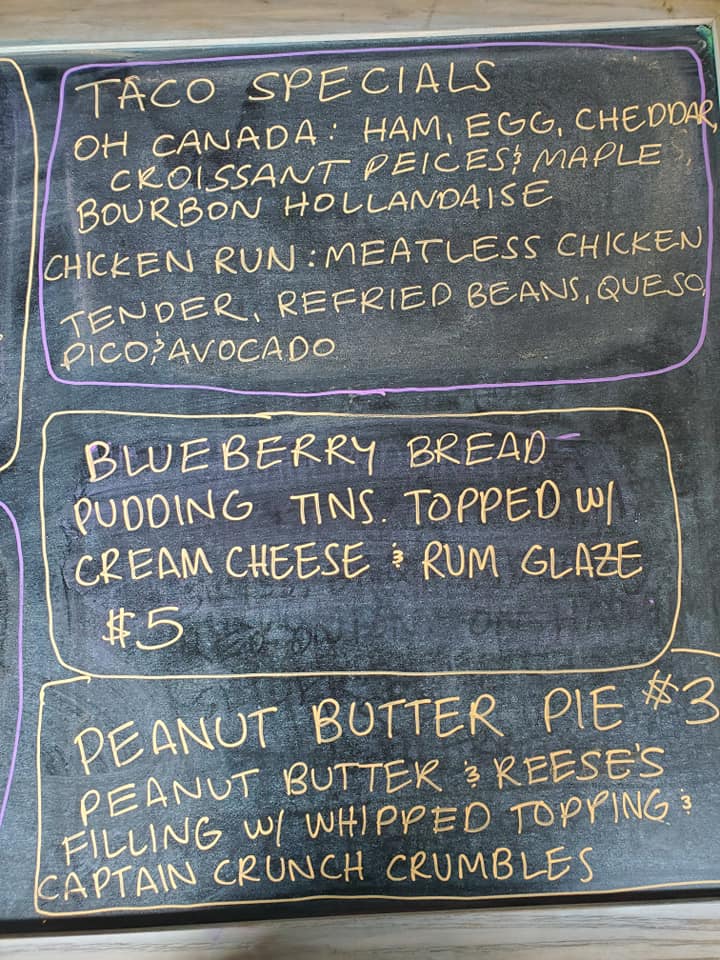 TACO SPECIALS
OH CANADA: HAM, EGG, CHEDDAR,
CROISSANT PEICES & MAPLE
BOURBON HOLLANDAISE
CHICKEN RUN: MEATLESS CHICKEN
TENDER, REFRIED BEANS, QUESO,
PICO & AVOCADO
BLUEBERRY BREAD
PUDDING TINS. TOPPED W/
CREAM CHEESE & RUM GLAZE
$5
PEANUT BUTTER PIE $3
PEANUT BUTTER & REESE'S
FILLING W/ WHIPPED TOPPING &
CAPTAIN CRUNCH CRUMBLES